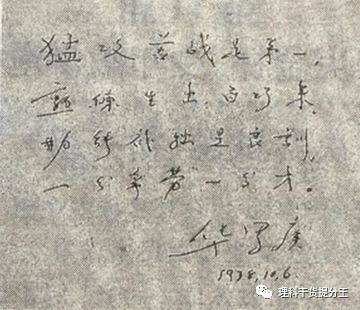 猛攻苦战是第一,
熟练生出百巧来,
勤能补拙是良训,
一分辛劳一分才。
华罗庚
1978.10.6
理科干货提分王